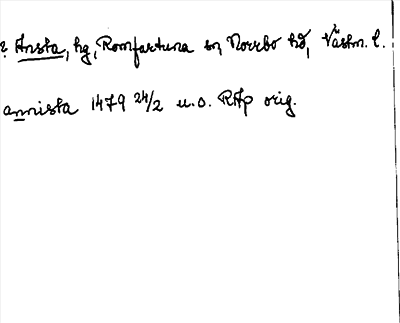 ? Ansta, hg, Romfartuna sn, Norrbo hd, Västm. l.
annista 1479 24/2 u.o. RAp orig.